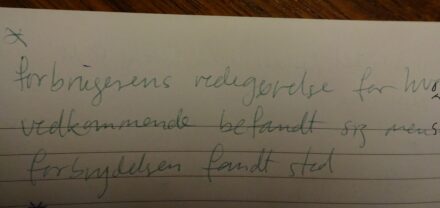 forbrugerens redegørelse for hvo
vedkommende befandt sig mens
forbrydelsen fandt sted